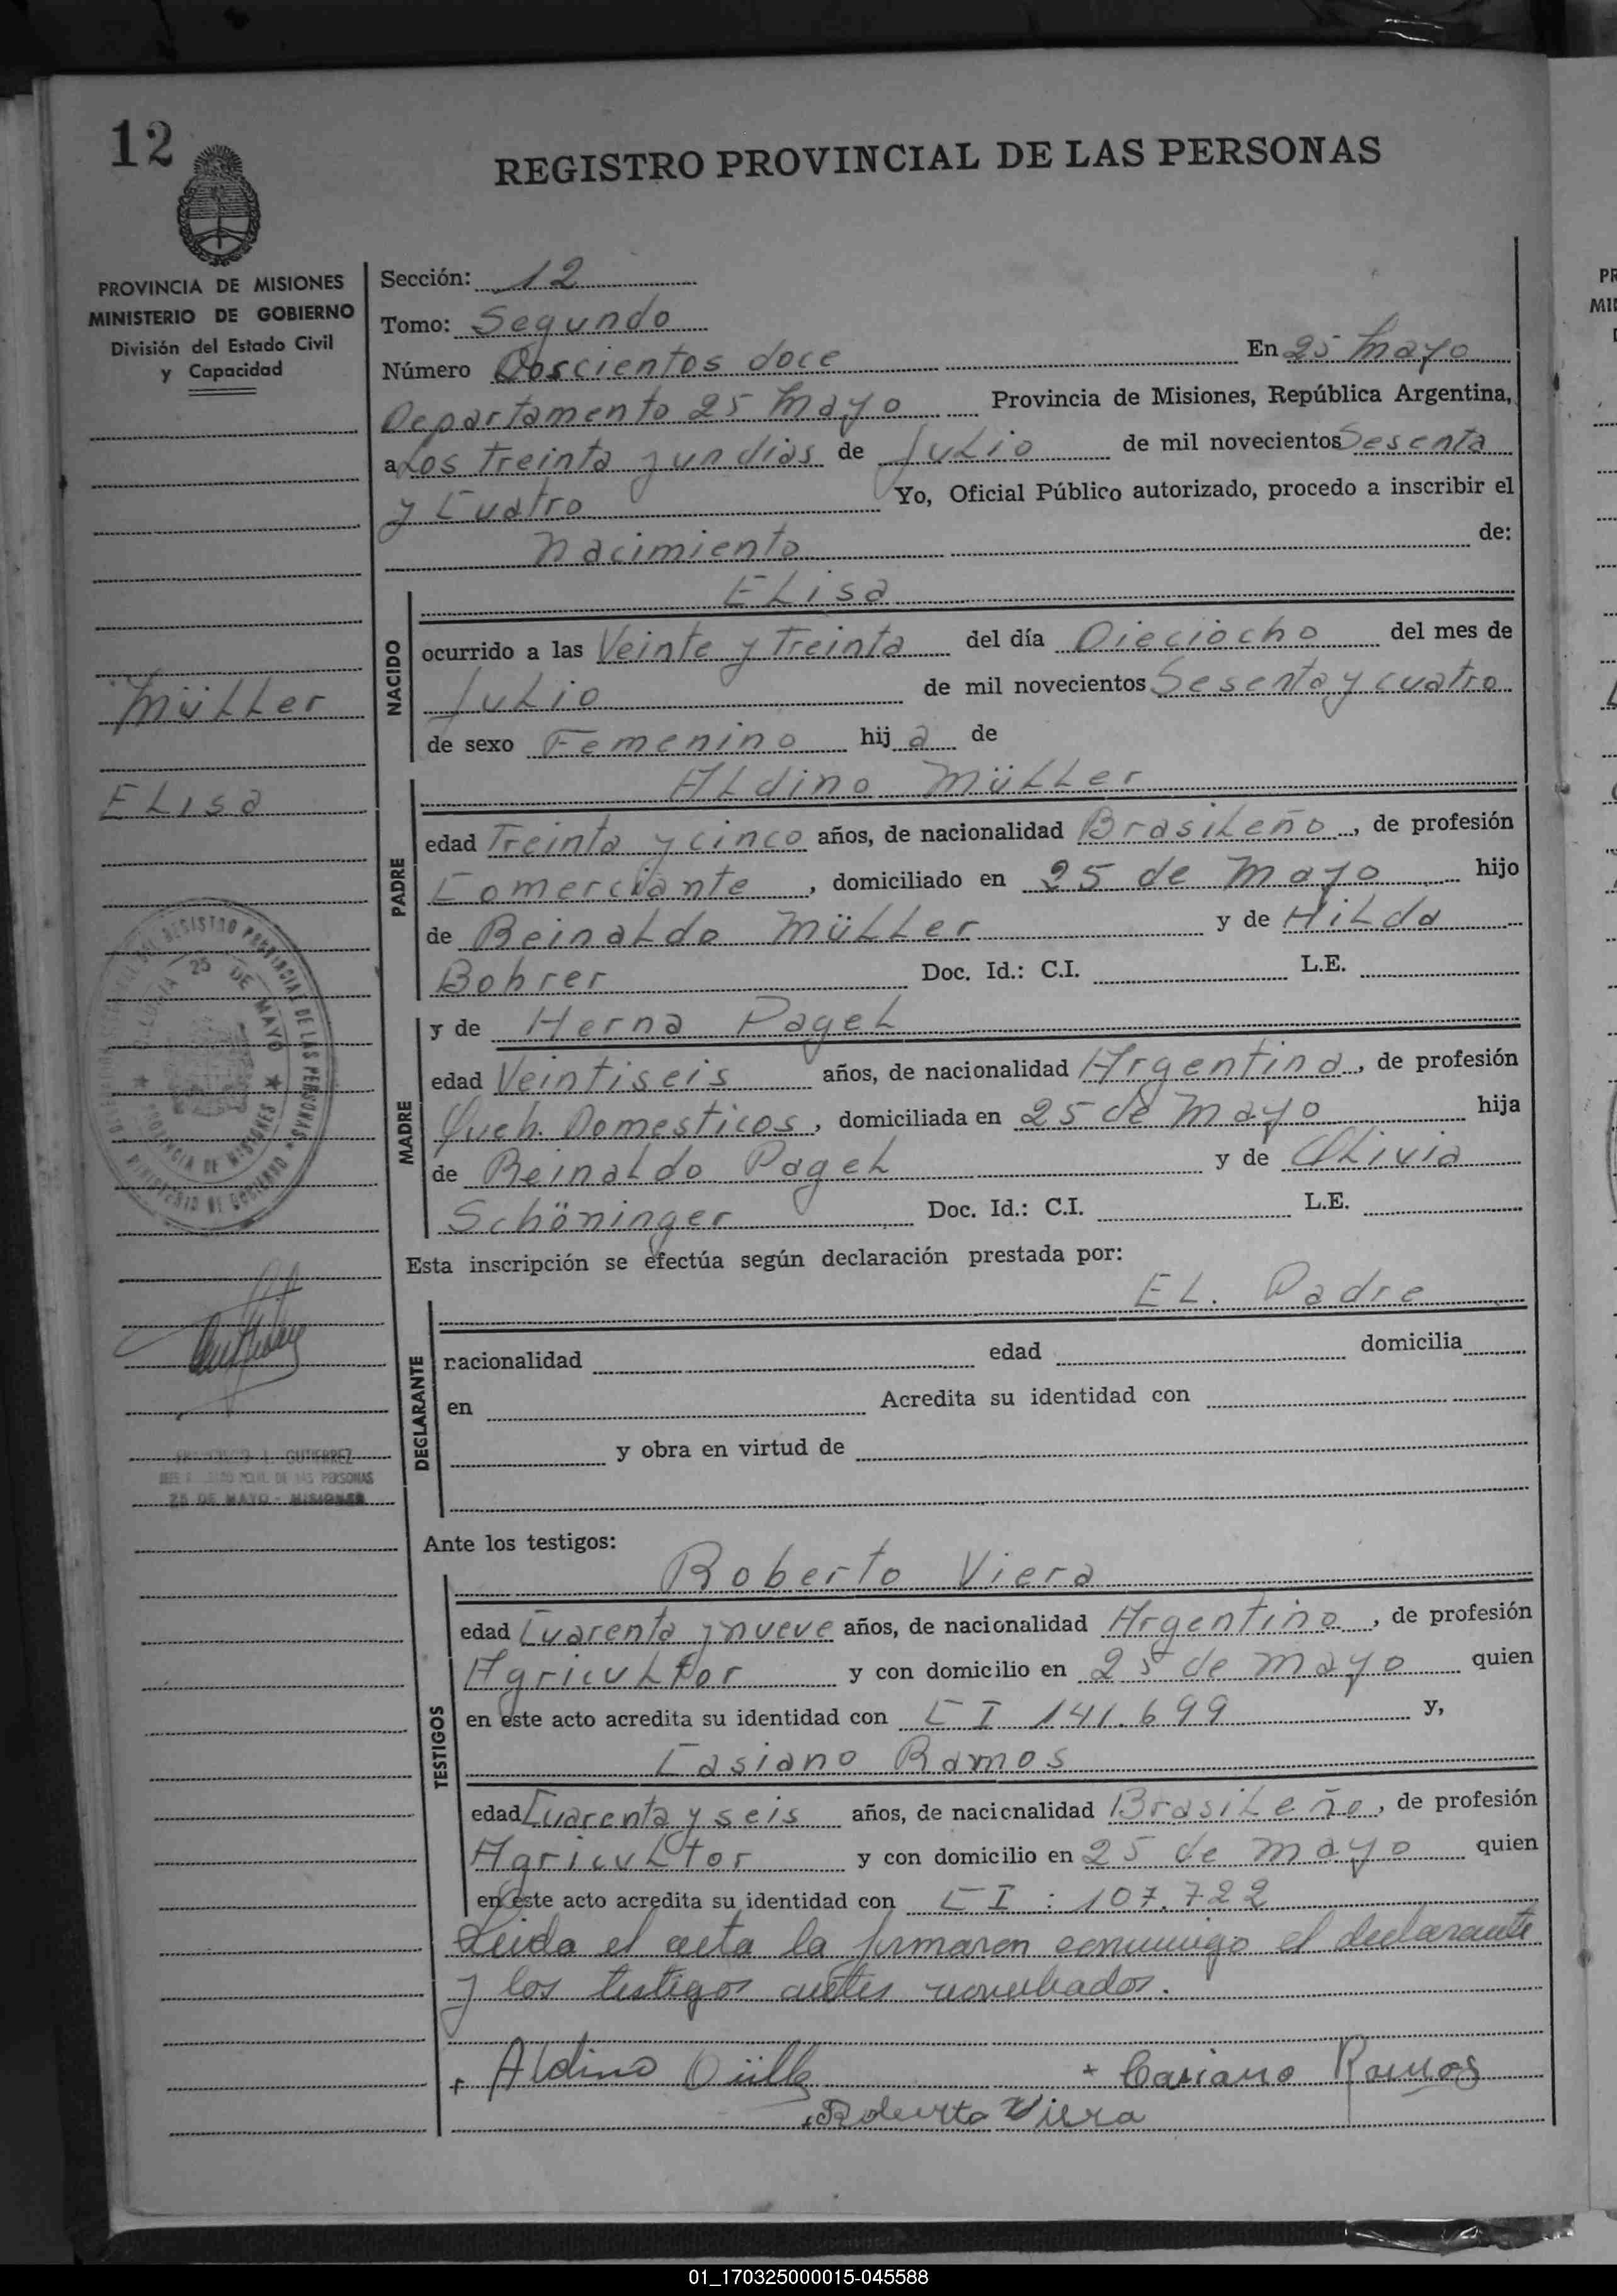 12
REGISTRO PROVINCIAL DE LAS PERSONAS
PROVINCIA DE MISIONES
MINISTERIO DE GOBIERNO
División del Estado Civil
y Capacidad
Müller
Elisa
REGISTRO PROVINCIAL DE LAS PERSONAS
25 DE MAYO
PROVINCIA DE MISIONES
MINISTERIO DE GOBIERNO
L. GUTIERREZ
DE LAS PERSONAS
25 DE MAYO - MISIONES
Sección: 12
Tomo: Segundo
Número Doscientos doce En 25 Mayo
Departamento 25 Mayo Provincia de Misiones, República Argentina,
a Los Treinta y un dias de Julio de mil novecientos Sesenta
y Cuatro Yo, Oficial Público autorizado, procedo a inscribir el
Nacimiento de:
NACIDO
Elisa
ocurrido a las Veinte y Treinta del día Dieciocho del mes de
Julio de mil novecientos Sesenta y cuatro
de sexo Femenino hij a de
PADRE
Aldino Müller
edad Treinta y cinco años, de nacionalidad Brasileño, de profesión
Comerciante, domiciliado en 25 de Mayo hijo
de Reinaldo Müller y de Hilda
Bohrer Doc. Id.: C.I. L.E.
MADRE
y de Herna Pagel
edad Veintiseis años, de nacionalidad Argentina, de profesión
Queh. Domesticos, domiciliada en 25 de Mayo hija
de Reinaldo Pagel y de Olivia
Schöninger Doc. Id.: C.I. L.E.
Esta inscripción se efectúa según declaración prestada por:
DECLARANTE
El. Padre
nacionalidad edad domicilia
en Acredita su identidad con
y obra en virtud de
Ante los testigos:
TESTIGOS
Roberto Viera
edad Cuarenta y nueve años, de nacionalidad Argentino, de profesión
Agricultor y con domicilio en 25 de Mayo quien
en este acto acredita su identidad con CI 141.699 y,
Casiano Ramos
edad Cuarenta y seis años, de nacionalidad Brasileño, de profesión
Agricultor y con domicilio en 25 de Mayo quien
en este acto acredita su identidad con CI: 107.722
Leida el acta la firmaron conmigo el declarante
y los testigos antes nombrados.
Aldino Müller + Casiano Ramos
Roberto Viera
01_170325000015-045588